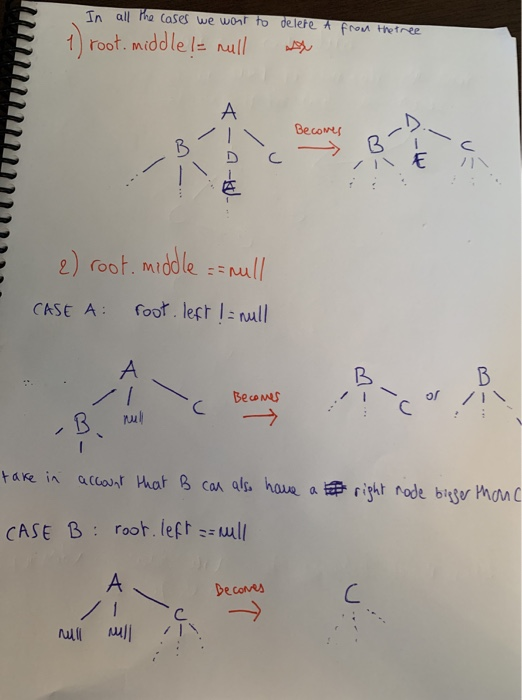 In all the cases we want to delete A from the tree
1) root.middle != null
A
B D C
E
Becomes
D
B E C
2) root.middle == null
CASE A: root.left != null
A
B null C
Becomes
B C or B
take in account that B can also have a right node bigger than C
CASE B: root.left == null
A
null null C
Becomes
C